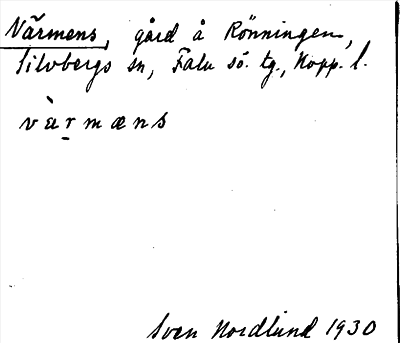 Värmens, gård å Rönningen,
Silvbergs sn, Falu sö. tg., Kopp. l.
vàr̠mæns
Sven Nordlund 1930